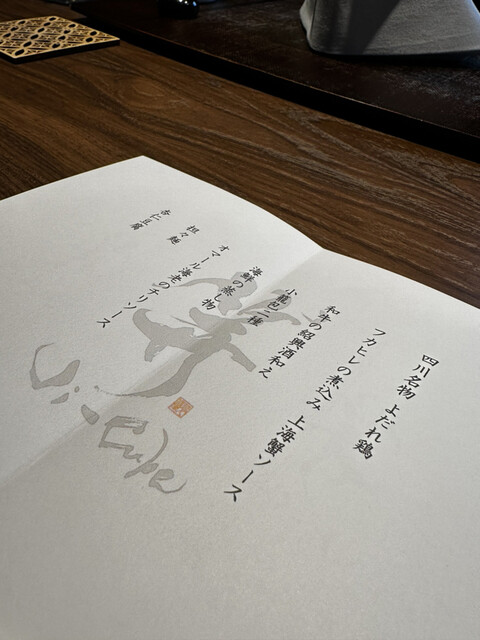 四川名物 よだれ鶏
フカヒレの煮込み 上海蟹ソース
和牛の紹興酒和え
小籠包二種
海鮮の蒸し物
オマール海老のチリソース
担々麺
杏仁豆腐